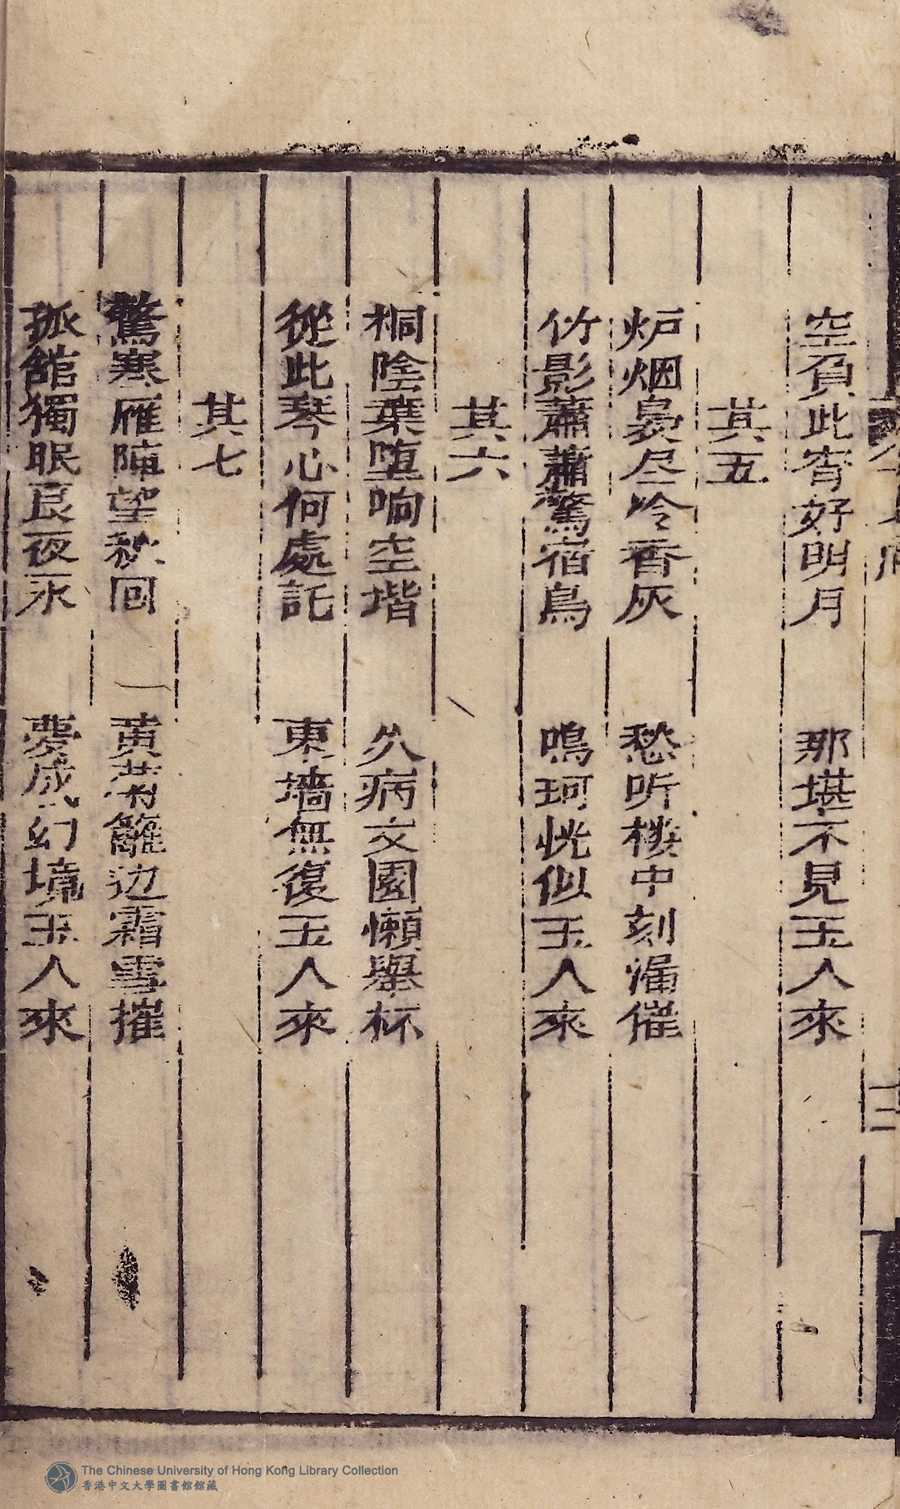 空負此宵好明月　那堪不見玉人來
其五
炉烟裊尽冷香灰　愁听楼中刻漏催
竹影蕭蕭驚宿鳥　鳴珂恍似玉人來
其六
桐陰葉堕响空堦　久病文園懶舉杯
從此琴心何處託　東墻無復玉人來
其七
驚寒雁陣望秋回　黄菊籬边霜雪摧
孤館獨眠良夜永　夢成幻境玉人來
二
The Chinese University of Hong Kong Library Collection
香港中文大學圖書館館藏